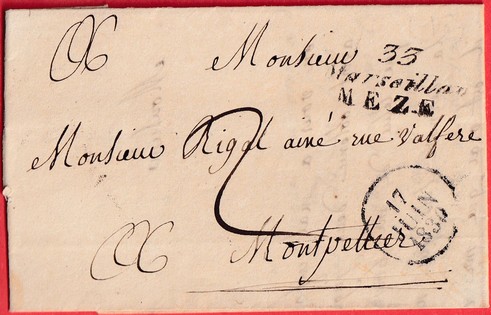 Monsieur
33
Marseillan
MEZE
Monsieur Rigal ainé rue Valfere
2
17
JUIN
Montpellier